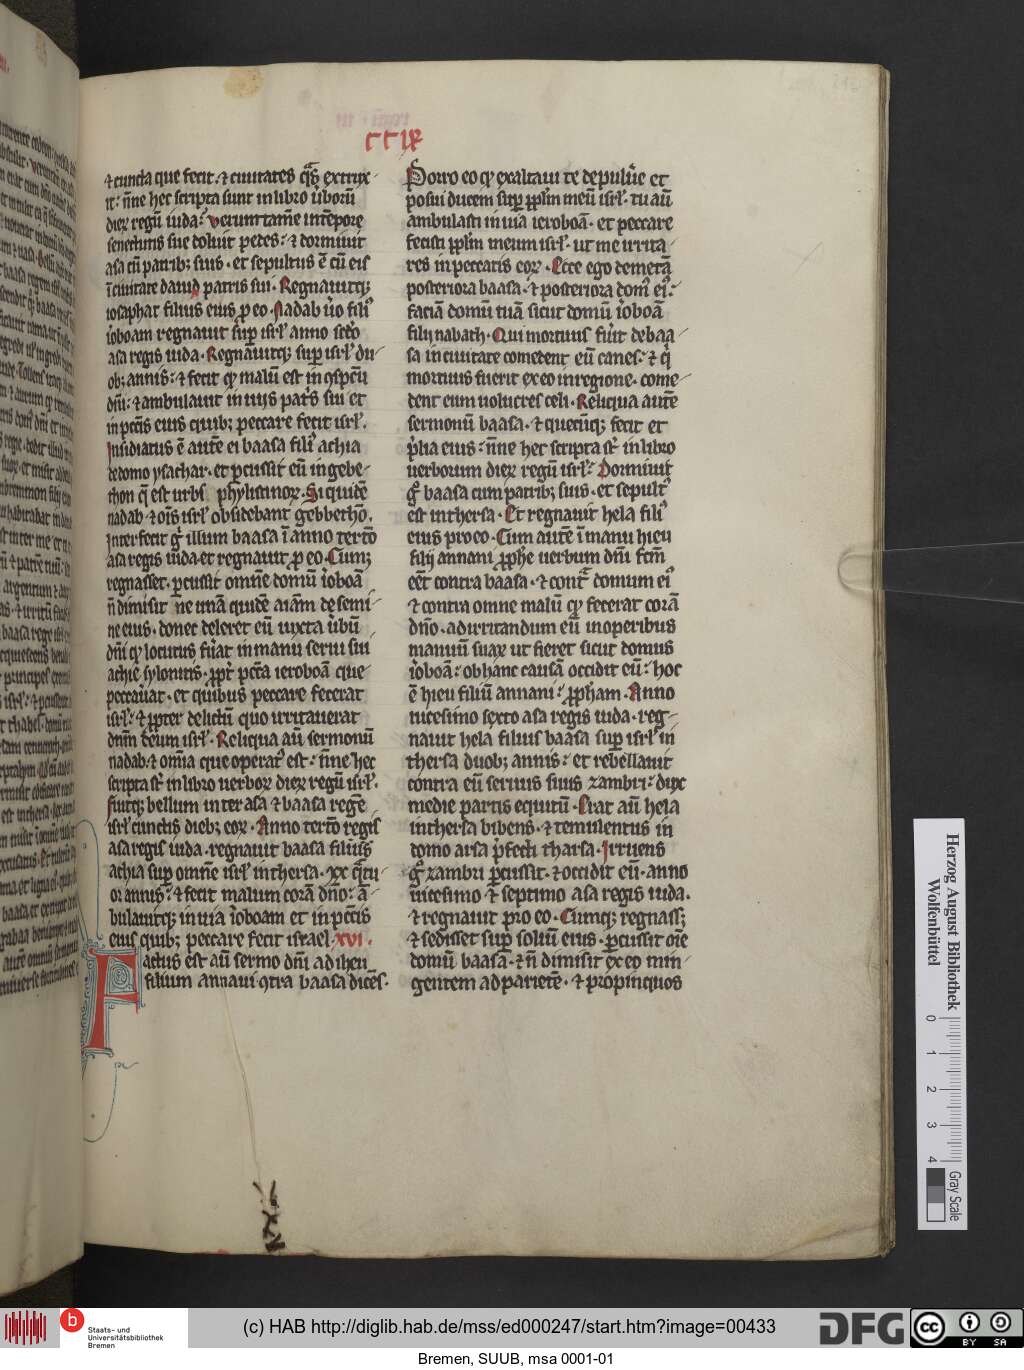 CCIX
⁊ cuncta que fecit · ⁊ ciuitates q̃s extrux-
it: nͫne hec scripta sunt in libro ũborũ
dieꝝ regũ iuda? verum tam̃e in tẽpore
senectutis sue doluit pedes: ⁊ dormiuit
asa cũ patrib; suis · et sepultus ẽ cũ eis
ĩ ciuitate dauid patris sui · Regnauitq;
iosaphat filius eius ꝓ eo · Nadab ũo fili9
iͦoboam regnauit sup̲ isrl̕ anno scd̕o
asa regis iuda · Regnauitq; sup̲ isrl̕ du-
ob; annis: ⁊ fecit qͦ malũ est in ꝯspc̃tu
dñi: ⁊ ambulauit in uijs pat's sui et
in pcc̃is eius quib; peccare fecit isrl̕.
Insidiatus ẽ autẽ ei baasa fili9 achia
de domo ysachar · et ꝑcussit eũ in gebe-
thon q̃ est urbs phylistinoꝝ · Siquidẽ
nadab ⁊ om̃is isrl̕ obsidebant gebbethõ.
Interfecit g̊ illum baasa ĩ anno tertio
asa regis iuda · et regnauit ꝓ eo · Cumq;
regnasset · ꝑcussit omñe domũ iͦoboã
ñ dimisit ne unã quidẽ aĩam de semi-
ne eius · donec deleret eũ iuxta ũbũ
dñi qͦ locutus fũat in manu serui sui
achie sylonitis · ꝓpt̕ pcc̃a ieroboã que
peccauat · et quibus peccare fecerat
isrl̕: ⁊ ꝓpter delictũ quo irritauerat
dñm deum isrl̕ · Reliqua aũ sermonũ
nadab · ⁊ om̃ia que operat9 est: nͫne hec
scripta st̃ in libro uerboꝝ dieꝝ regũ isrl̕.
Fuitq; bellum inter asa ⁊ baasa regẽ
isrl̕ cunctis dieb; eoꝝ · Anno tertio regis
asa regis iuda · regnauit baasa filius
achia sup̲ omñe isrl̕ in thersa · xx q̃tu-
or annis: ⁊ fecit malum corã dño: ã-
bulauitq; in uia iͦoboam et in pcc̃is
eius quib; peccare fecit israel · XVI ·
Factus est aũ sermo dñi ad iheu
filium annaui ꝯtra baasa dicẽs ·
Porro eo qͦ exaltaui te de puluͥe et
posui ducem sup̲ ppl̃m meũ isrl̕ · tu aũ
ambulasti in uia ieroboã · et peccare
fecisti ppl̃m meum isrl̕ · ut me irrita-
res in peccatis eoꝝ · Ecce ego demetã
posteriora baasa · ⁊ posteriora dom9 ei9:
faciã domũ tuã sicut domũ iͦoboã
filij nabath · Qui mortuus fũit de baa-
sa in ciuitate comedent eũ canes: ⁊ q̃
mortuus fuerit ex eo in regione · come-
dent eum uolucres celi · Reliqua autẽ
sermonũ baasa · ⁊ quecũq; fecit et
p̃lia eius: nͫne hec scripta st̃ in libro
uerborum dieꝝ regũ isrl̕: Dormiuit
g̊ baasa cum patrib; suis · et sepult9
est in thersa · Et regnauit hela fili9
eius pro eo · Cum autẽ ĩ manu hieu
filij annani ꝓph̃e uerbum dñi fcm̃
eẽt contra baasa · ⁊ contͣ domum ei9
⁊ contra omne malũ qͦ fecerat corã
dño · ad irritandum eũ in operibus
manuũ suaꝝ ut fieret sicut domus
iͦoboã: ob hanc causã occidit eũ: hoc
ẽ hieu filiũ annani: ꝓph̃am · Anno
uicesimo sexto asa regis iuda · reg-
nauit hela filius baasa sup̲ isrl̕ in
thersa duob; annis: et rebellauit
contra eũ seruus suus zambri: dux
medie partis equitũ · Erat aũ hela
in thersa bibens · ⁊ temulentus in
domo arsa p̃fecti tharsa · Irruens
g̊ zambri ꝑcussit · ⁊ occidit eũ · anno
uicesimo ⁊ septimo asa regis iuda ·
⁊ regnauit pro eo · Cumq; regnass;
⁊ sedisset sup̲ soliũ eius · ꝑcussit oñe
domũ baasa · ⁊ ñ dimisit ex eo min-
gentem ad parietẽ · ⁊ propinquos
Herzog August Bibliothek
Wolfenbüttel
0 1 2 3 4
Gray Scale
HAB
b
Staats- und
Universitätsbibliothek
Bremen
(c) HAB http://diglib.hab.de/mss/ed000247/start.htm?image=00433
DFG
cc
BY SA
Bremen, SUUB, msa 0001-01